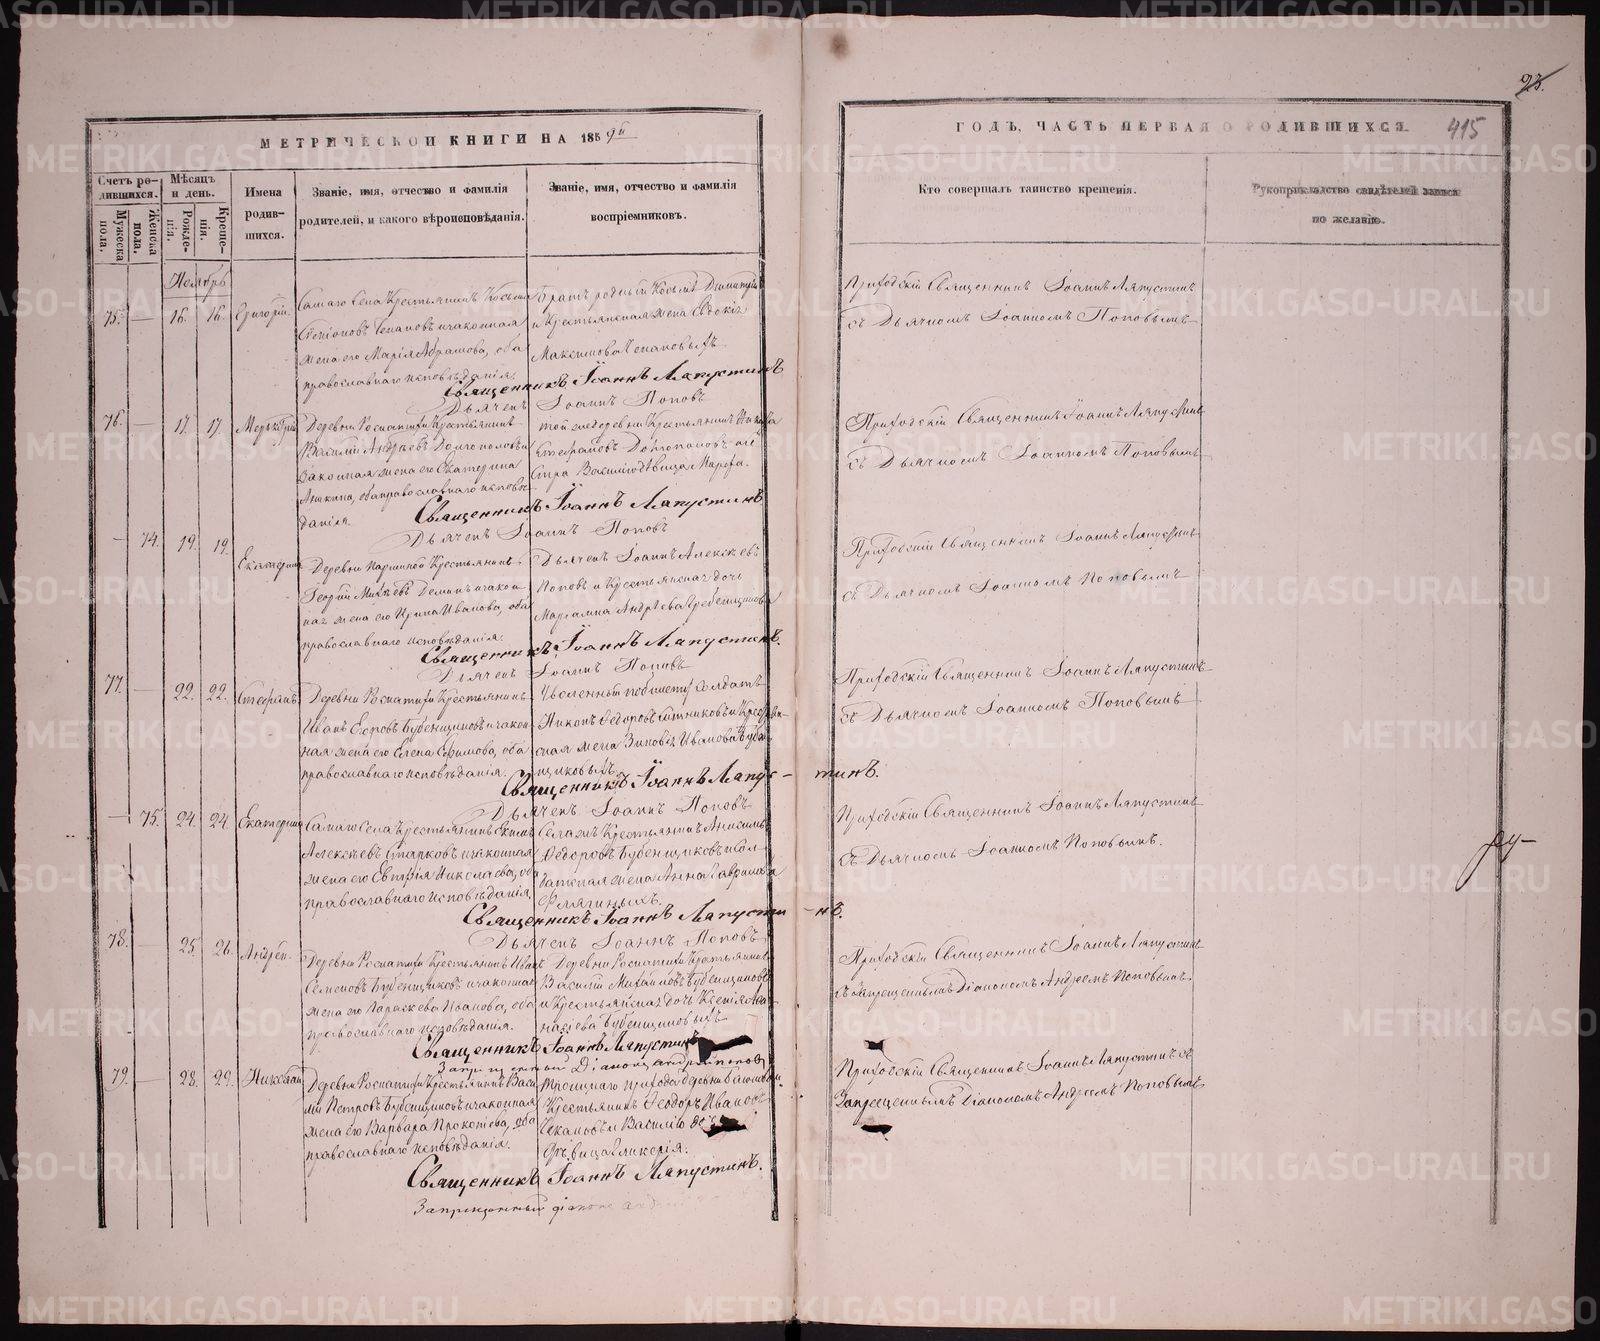 МЕТРИЧЕСКОЙ КНИГИ НА 1859й
Счетъ ро-
дившихся.
Мужеска
пола.
Женска
пола.
Мѣсяцъ
и день.
Рожде-
нія.
Креще-
нія.
Имена
родив-
шихся.
Званіе, имя, отчество и фамилія
родителей, и какого вѣроисповѣданія.
Званіе, имя, отчество и фамилія
воспріемниковъ.
Ноябрь
75. — 16. 16. Григорій
Самаго Села Крестьянинъ Косьма
и законная
жена его Марія Абрамова, оба
православнаго исповѣданія.
Братъ родный Косьмѣ Димитрій
и Крестьянская жена Евдокія
Максимова
Священникъ Іоаннъ Ляпустинъ
Дьячекъ Іоаннъ Поповъ
76. — 17. 17. Меркурій
Деревни Роспатихи Крестьянинъ
Василій Андреевъ Долгополовъ и
законная жена его Екатерина
Аникина, оба православнаго исповѣ-
данія.
той же деревни Крестьянинъ
Стефановъ Долгополовъ и се-
стра Василію дѣвица Марфа.
Священникъ Іоаннъ Ляпустинъ
Дьячекъ Іоаннъ Поповъ
— 74. 19. 19. Екатерина
Деревни Паршиной Крестьянинъ
Георгій Михѣевъ Деминъ и закон-
ная жена его Ирина Иванова, оба
православнаго исповѣданія.
Дьячекъ Іоаннъ Алексѣевъ
Поповъ и Крестьянская дочь
Маріамна Андрѣева Гребенщикова
Священникъ Іоаннъ Ляпустинъ.
Дьячекъ Іоаннъ Поповъ
77. — 22. 22. Стефанъ
Деревни Роспатихи Крестьянинъ
Иванъ Егоровъ Бубенщиковъ и закон-
ная жена его Елена Ефимова, оба
православнаго исповѣданія.
Уволенный по билету Солдатъ
Никонъ Ѳедоровъ Ситниковъ и Крестьян-
ская жена Зиновія Иванова Бубен-
щиковыхъ
Священникъ Іоаннъ Ляпус-тинъ.
Дьячекъ Іоаннъ Поповъ
— 75. 24. 24. Екатерина
Самаго Села Крестьянинъ Екимъ
Алексѣевъ Старковъ и законная
жена его Николаева, оба
православнаго исповѣданія.
Села ж Крестьянинъ Анисимъ
Ѳедоровъ Бубенщиковъ и Сол-
датская жена Анна Гаврилова
Священникъ Іоаннъ Ляпусти-нъ.
Дьячекъ Іоаннъ Поповъ
78. — 25. 26. Андрей.
Деревни Роспатихи Крестьянинъ Иванъ
Семеновъ Бубенщиковъ и законная
жена его Параскева Иванова, оба
православнаго исповѣданія.
Деревни Роспатихи Крестьянинъ
Василій Михайловъ Бубенщиковъ
и Крестьянская дочь Ксенія
Бубенщиковыхъ
Священникъ Іоаннъ Ляпустинъ
Запрещенный Діаконъ Андрей Поповъ
79. — 28. 29. Николай
Деревни Роспатихи Крестьянинъ Васи-
лій Петровъ Бубенщиковъ и законная
жена его Варвара Прокопіева, оба
православнаго исповѣданія.
Троицкаго прихода деревни
Крестьянинъ Ѳеодоръ Ивановъ
Чекановъ и Василію
дѣвица Гликерія.
Священникъ Іоаннъ Ляпустинъ.
Запрещенный діаконъ Андрей
23.
ГОДЪ, ЧАСТЬ ПЕРВАЯ О РОДИВШИХСЯ. 415
Кто совершалъ таинство крещенія.
Рукоприкладство свидѣтелей записи
по желанію.
Приходскій Священникъ Іоаннъ Ляпустинъ
съ Дьячкомъ Іоанномъ Поповымъ
Приходскій Священникъ Іоаннъ Ляпустинъ
съ Дьячкомъ Іоанномъ Поповымъ
Приходскій Священникъ Іоаннъ Ляпустинъ
съ Дьячкомъ Іоанномъ Поповымъ
Приходскій Священникъ Іоаннъ Ляпустинъ
съ Дьячкомъ Іоанномъ Поповымъ
Приходскій Священникъ Іоаннъ Ляпустинъ
съ Дьячкомъ Іоанномъ Поповымъ.
Приходскій Священникъ Іоаннъ Ляпустинъ
съ запрещеннымъ Діакономъ Андреемъ Поповымъ.
Приходскій Священникъ Іоаннъ Ляпустинъ съ
Запрещеннымъ Діакономъ Андреемъ Поповымъ
METRIKI.GASO-URAL.RU